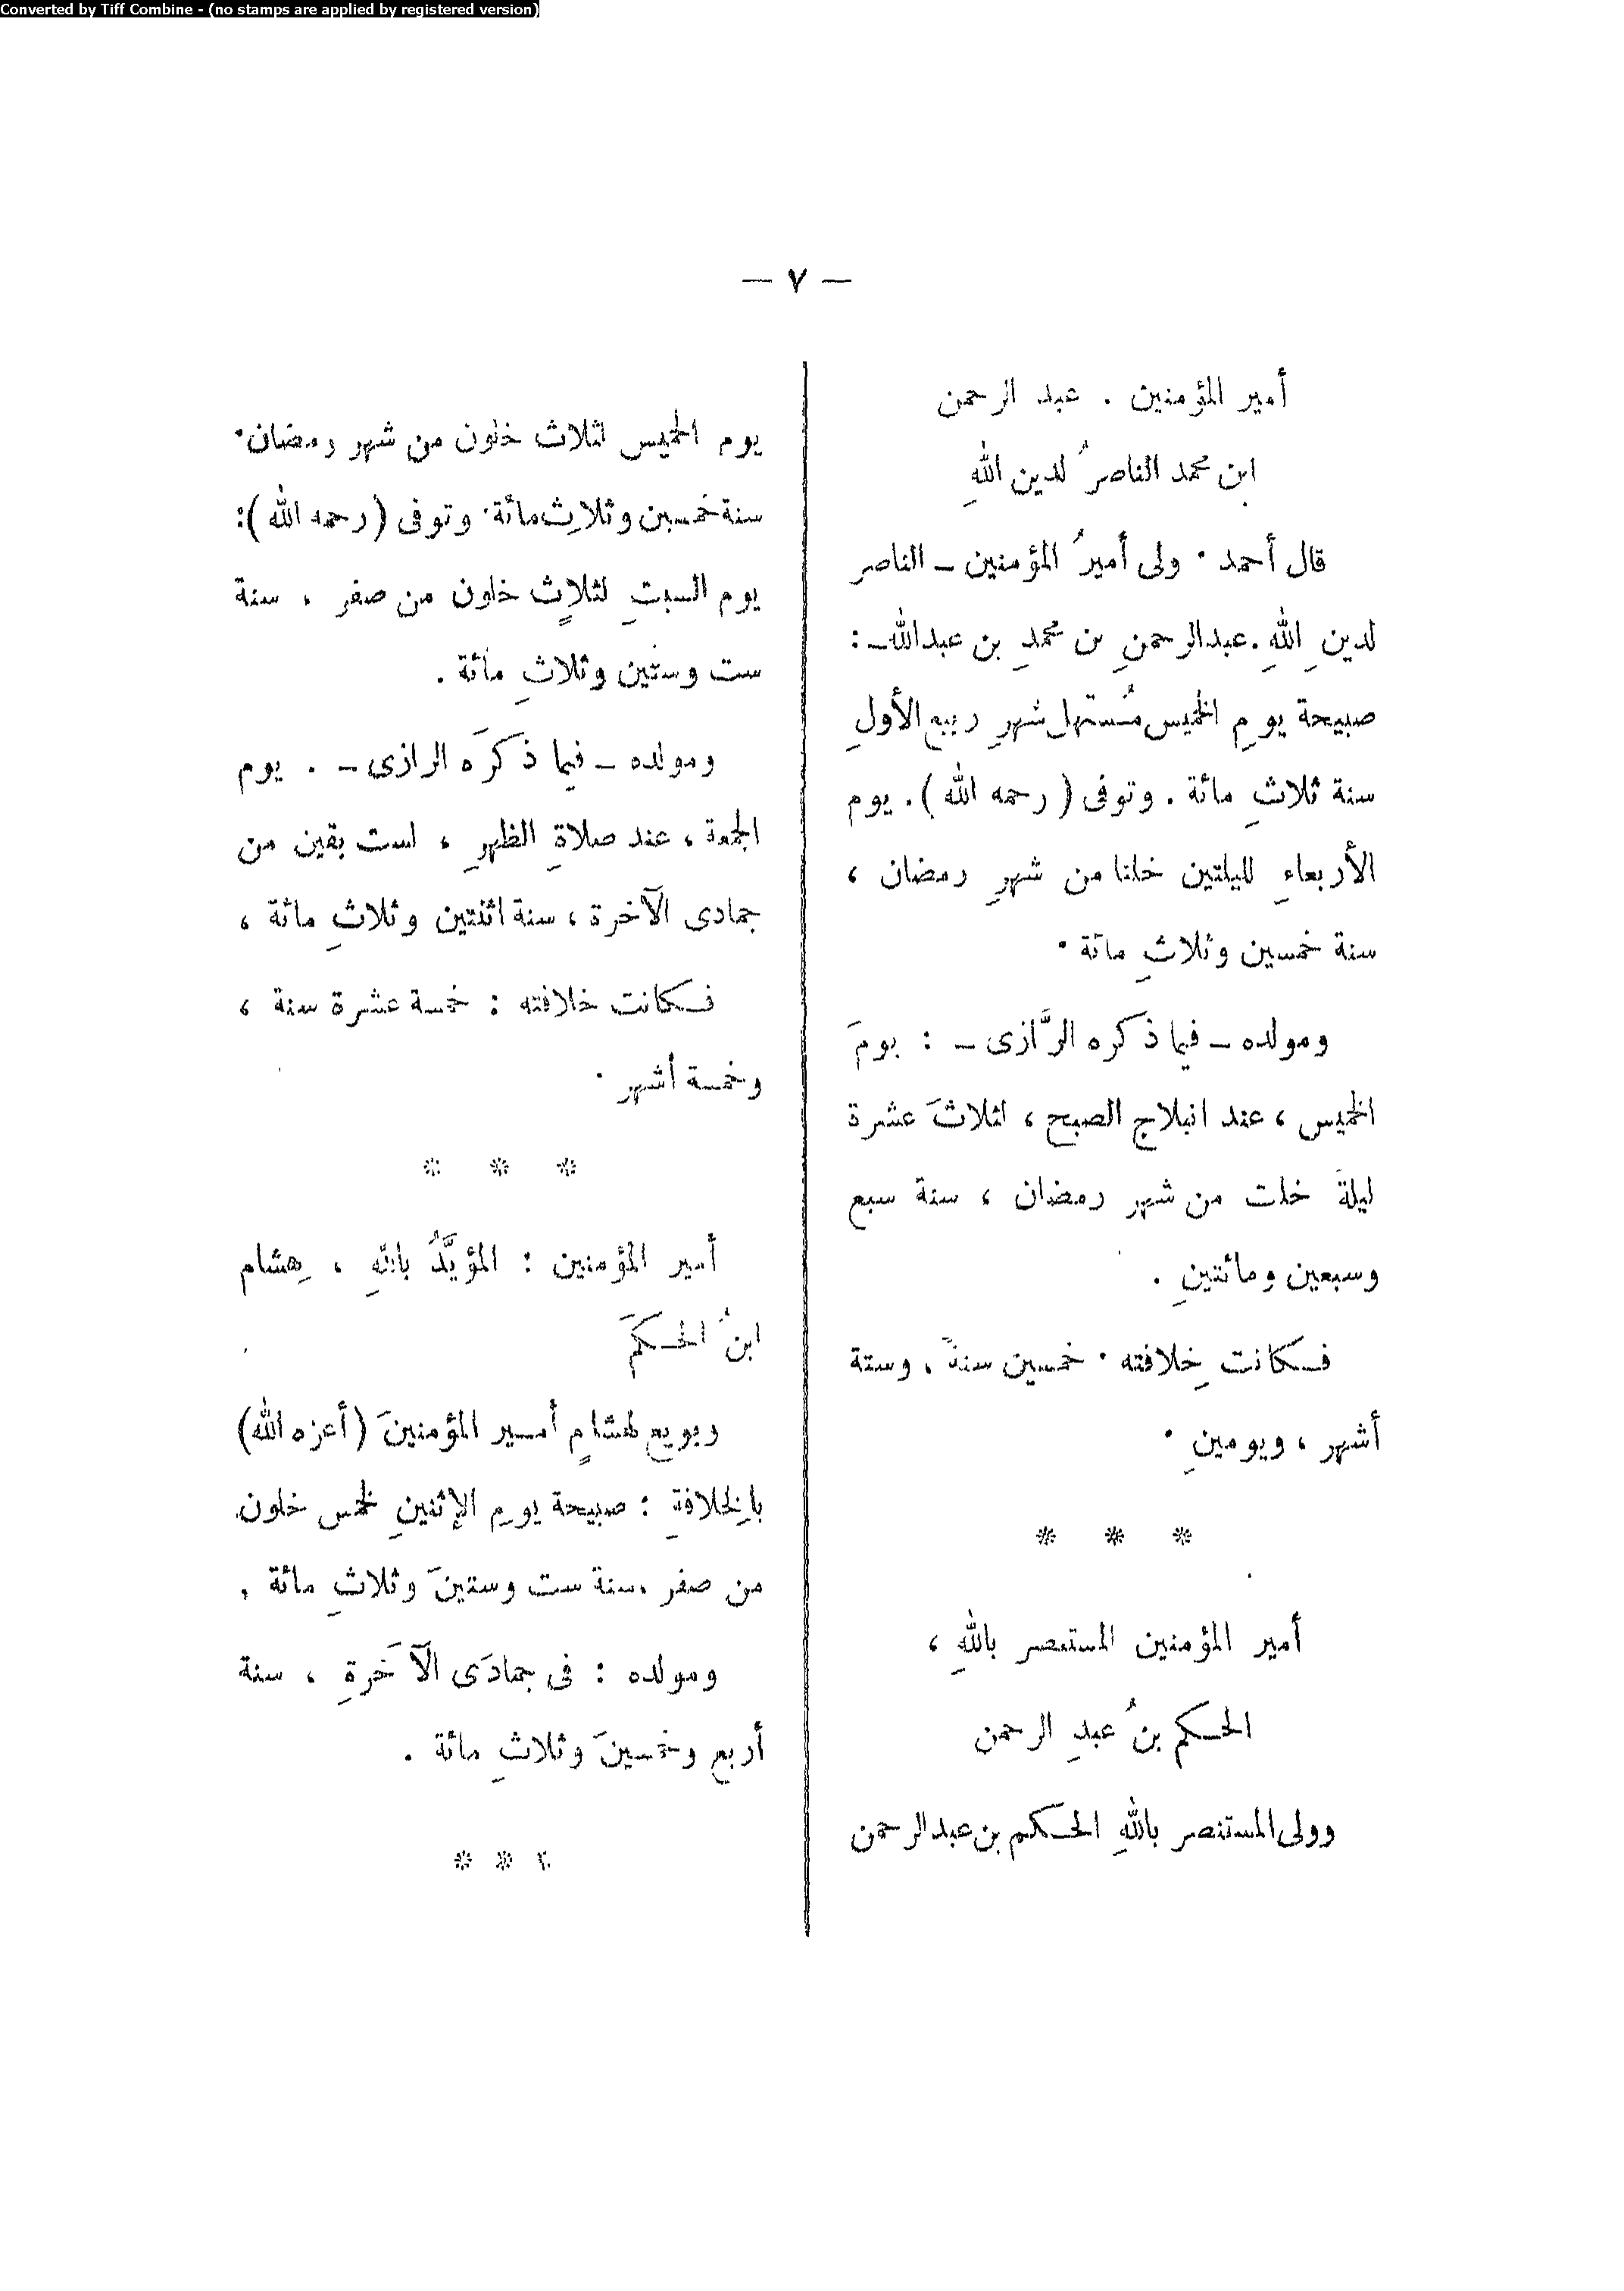 Converted by Tiff Combine - (no stamps are applied by registered version)
— ٧ —
أمير المؤمنين . عبد الرحمن
ابن محمد الناصرُ لدين اللهِ
قال أحمد . ولى أميرُ المؤمنين – الناصر
لدينِ اللهِ . عبد الرحمنِ بن محمدِ بن عبد الله – :
صبيحة يومِ الخميس مُستهل شهرِ ربيع الأولِ
سنة ثلاثِ مائة . وتوفى ( رحمه الله ) . يوم
الأربعاءِ لليلتين خلتا من شهرِ رمضان ،
سنة خمسين وثلاثِ مائة .
ومولده – فيما ذكره الرَّازى – : يومَ
الخميس ، عند انبلاج الصبح ، لثلاثَ عشرة
ليلة خلت من شهر رمضان ، سنة سبع
وسبعين ومائتينِ .
فكانت خِلافته . خمسين سنةً ، وستة
أشهر ، ويومينِ .
* * *
أمير المؤمنين المستنصر باللهِ ،
الحكم بنُ عبدِ الرحمن
وولى المستنصر باللهِ الحكم بن عبد الرحمن
يوم الخميس لثلاث خلون من شهر رمضان .
سنة خمسين وثلاثِ مائة . وتوفى ( رحمه الله ) :
يوم السبتِ لثلاثٍ خلون من صفر ، سنة
ست وستين وثلاثِ مائة .
ومولده – فيما ذكرَه الرازى – . يوم
الجمعة ، عند صلاةِ الظهرِ ، لست بقين من
جمادى الآخرة ، سنة اثنتين وثلاثِ مائة ،
فكانت خلافته : خمسة عشرة سنة ،
وخمسة أشهر .
* * *
أمير المؤمنين : المؤيَّدُ باللهِ ، هِشام
ابنُ الحكمَ
وبويع لهشامٍ أمير المؤمنينَ ( أعزه الله )
بالخِلافةِ : صبيحة يومِ الإثنينِ لخمس خلون
من صفر ، سنة ست وستينَ وثلاثِ مائة .
ومولده : فى جمادَى الآخَرةِ ، سنة
أربع وخمسينَ وثلاثِ مائة .
* * *